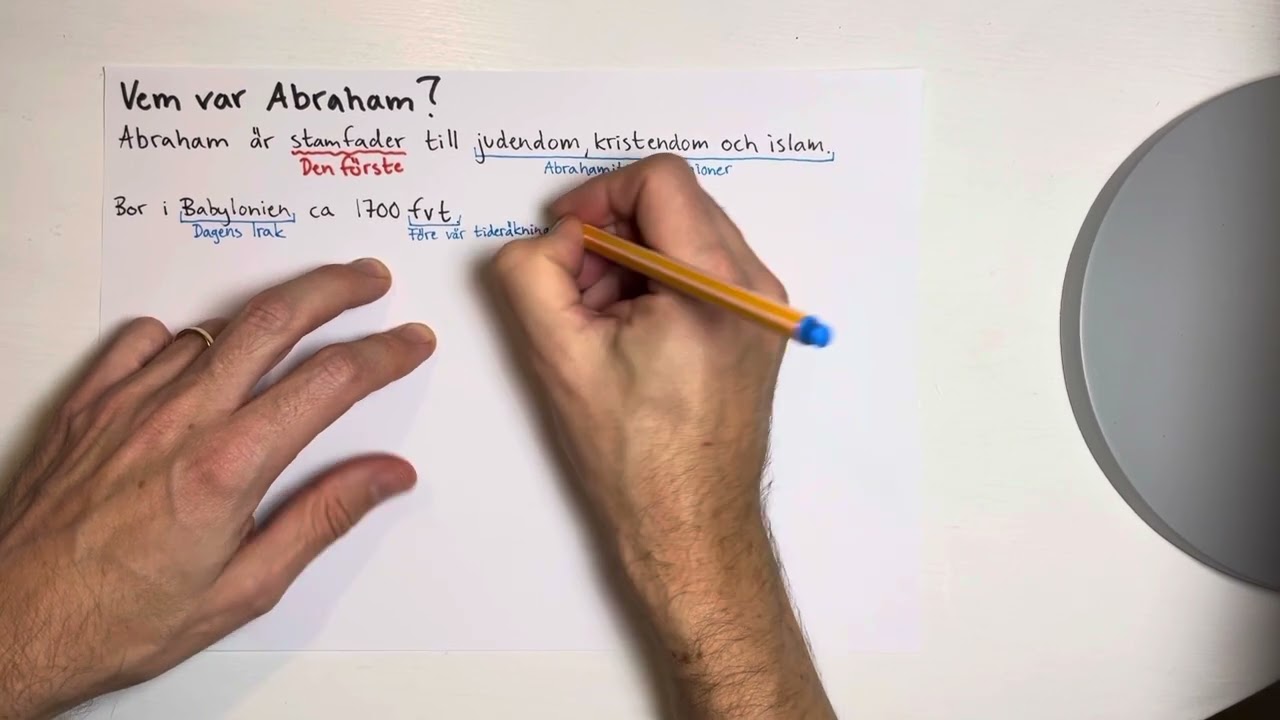 Vem var Abraham?
Abraham är stamfader till judendom, kristendom och islam.
Den förste
Bor i Babylonien, ca 1700 fvt,
Dagens Irak
Före vår tideräkning